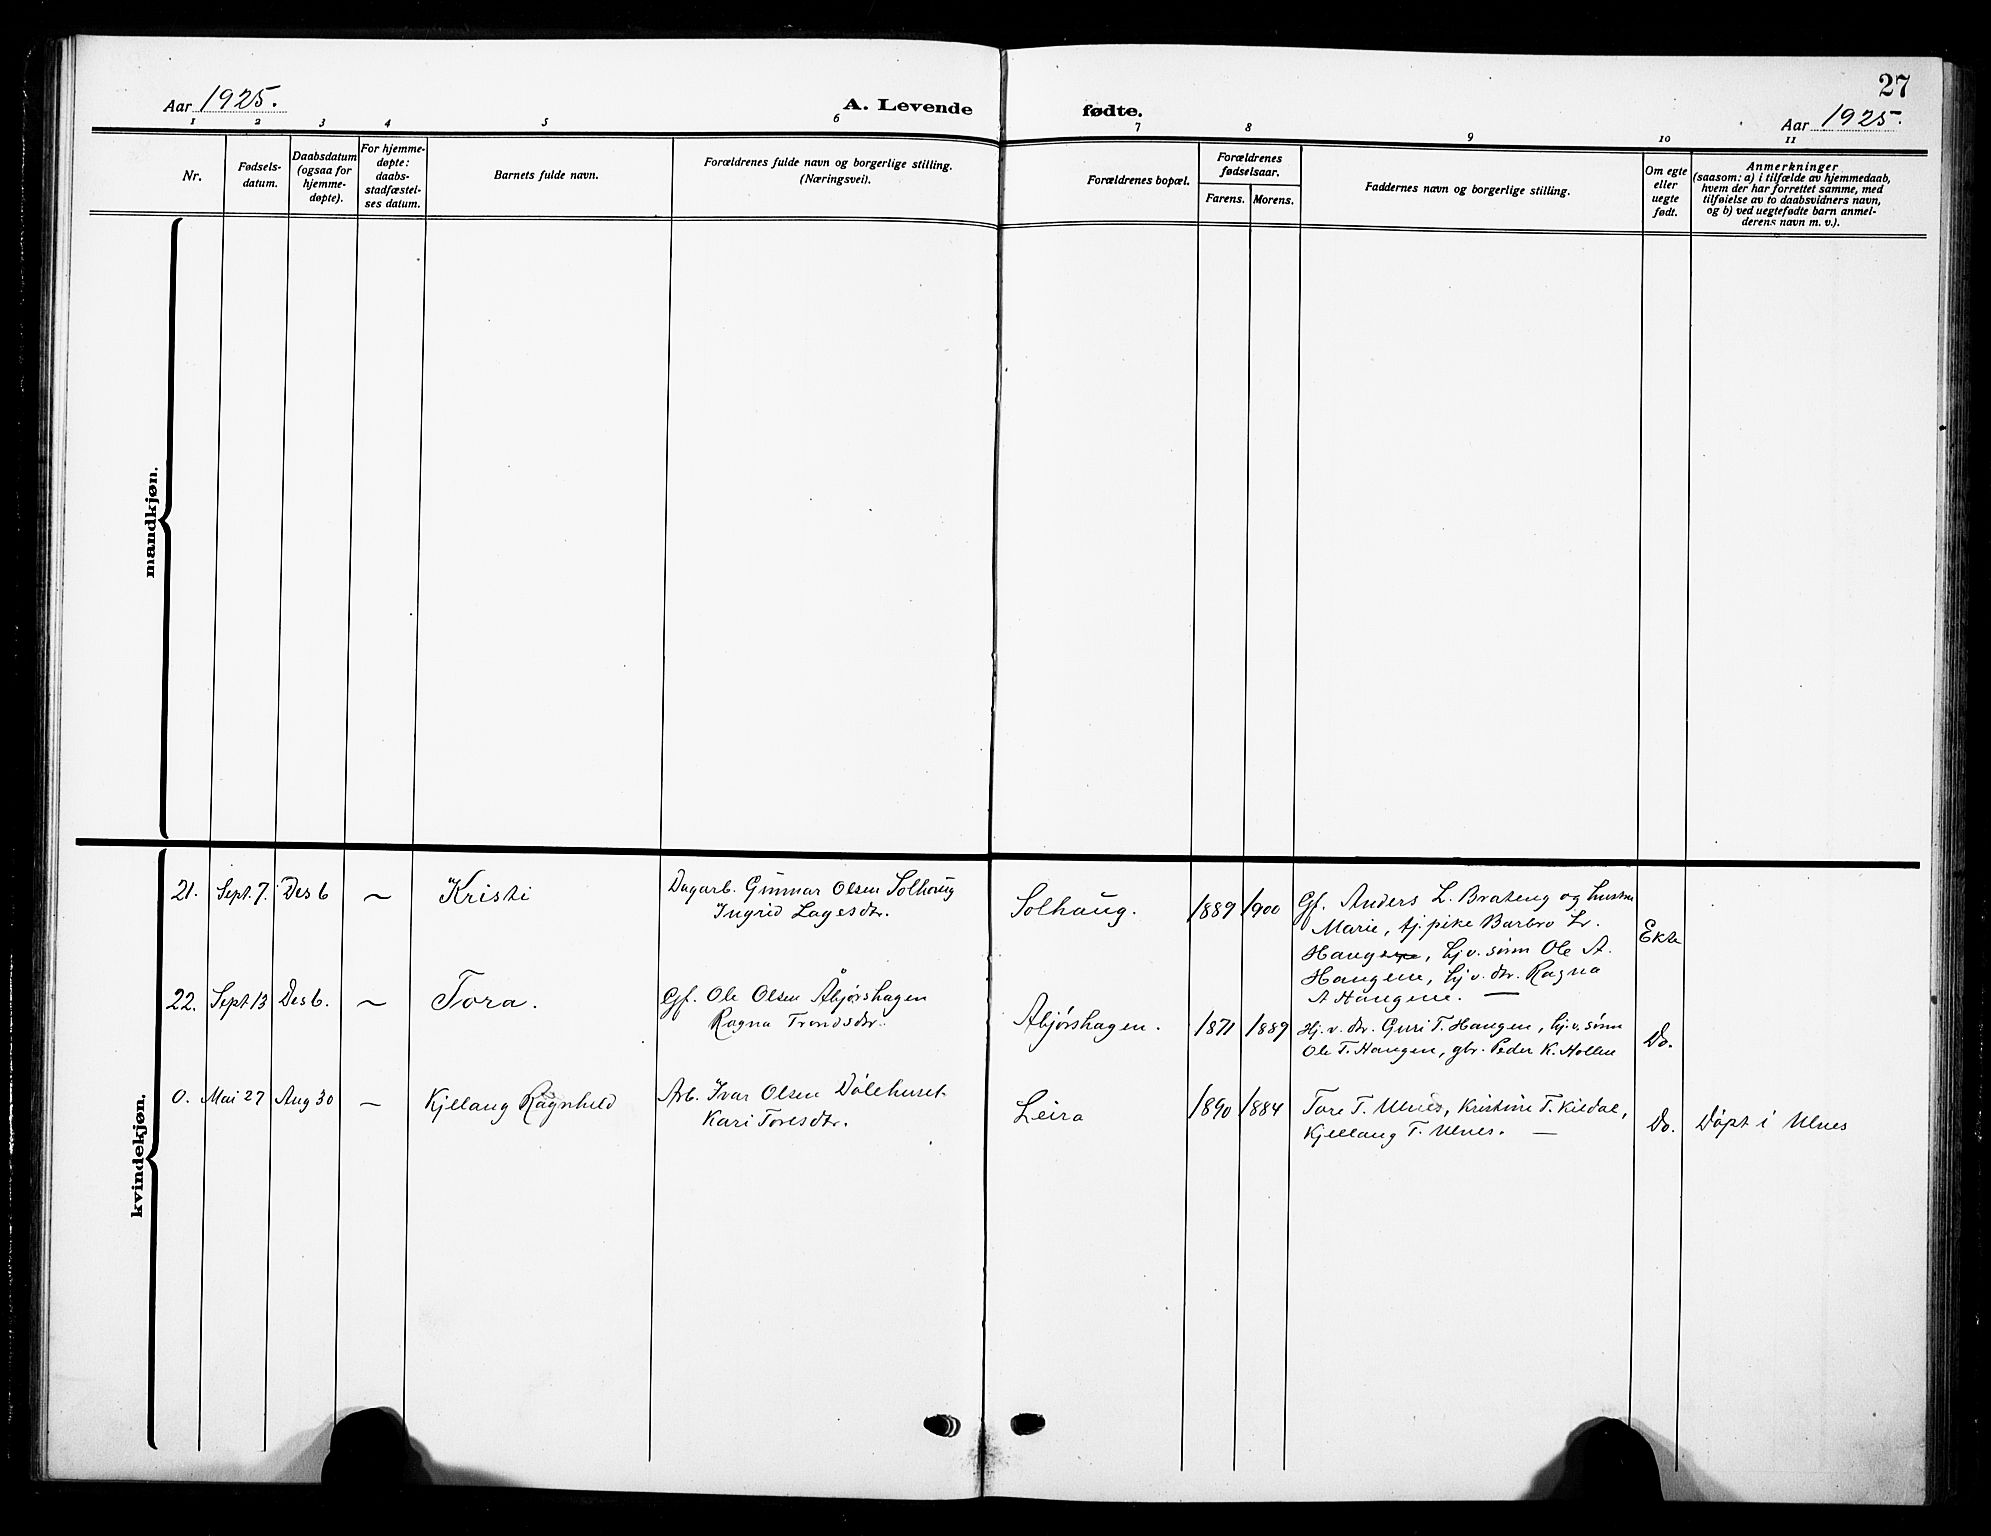 27
Aar 1925.
A. Levende fødte.
Aar 1925.
1 2 3 4 5 6 7 8 9 10 11
Nr.
Fødsels-
datum.
Daabsdatum
(ogsaa for
hjemme-
døpte).
For hjemme-
døpte:
daabs-
stadfæstel-
ses datum.
Barnets fulde navn.
Forældrenes fulde navn og borgerlige stilling.
(Næringsvei).
Forældrenes bopæl.
Forældrenes
fødselsaar.
Farens. Morens.
Faddernes navn og borgerlige stilling.
Om egte
eller
uegte
født.
Anmerkninger
(saasom: a) i tilfælde av hjemmedaab,
hvem der har forrettet samme, med
tilføielse av to daabsvidners navn,
og b) ved uegtefødte barn anmel-
derens navn m. v.).
mandkjøn.
kvindekjøn.
21. Sept. 7. Des 6 — Kristi
Dagarb. Gunnar Olsen Solhaug
Ingrid Lagesdtr.
Solhaug. 1889 1900
Gf. Anders L. Brateng og hustru
Marie, tj. pike Barbro Lr.
Haugene, hj. v. sønn Ole A.
Haugene, hj v. dtr. Ragna
A Haugene. —
Ekte
22. Sept 13 Des 6. — Tora.
Gf. Ole Olsen Åbjørshagen
Ragna Trondsdtr.
Abjørshagen. 1871 1889
Hj. v. dtr. Guri T. Haugen, hj. v. sønn
Ole T. Haugen, gbr. Peder K. Hollen
Do.
0. Mai 27 Aug 30 — Kjellaug Ragnhild
Arb. Ivar Olsen Dølehuset
Kari Toresdtr.
Leira 1890 1884
Tore T. Ulnes, Kristine T. Kildal,
Kjellaug T. Ulnes. —
Do. Døpt i Ulnes